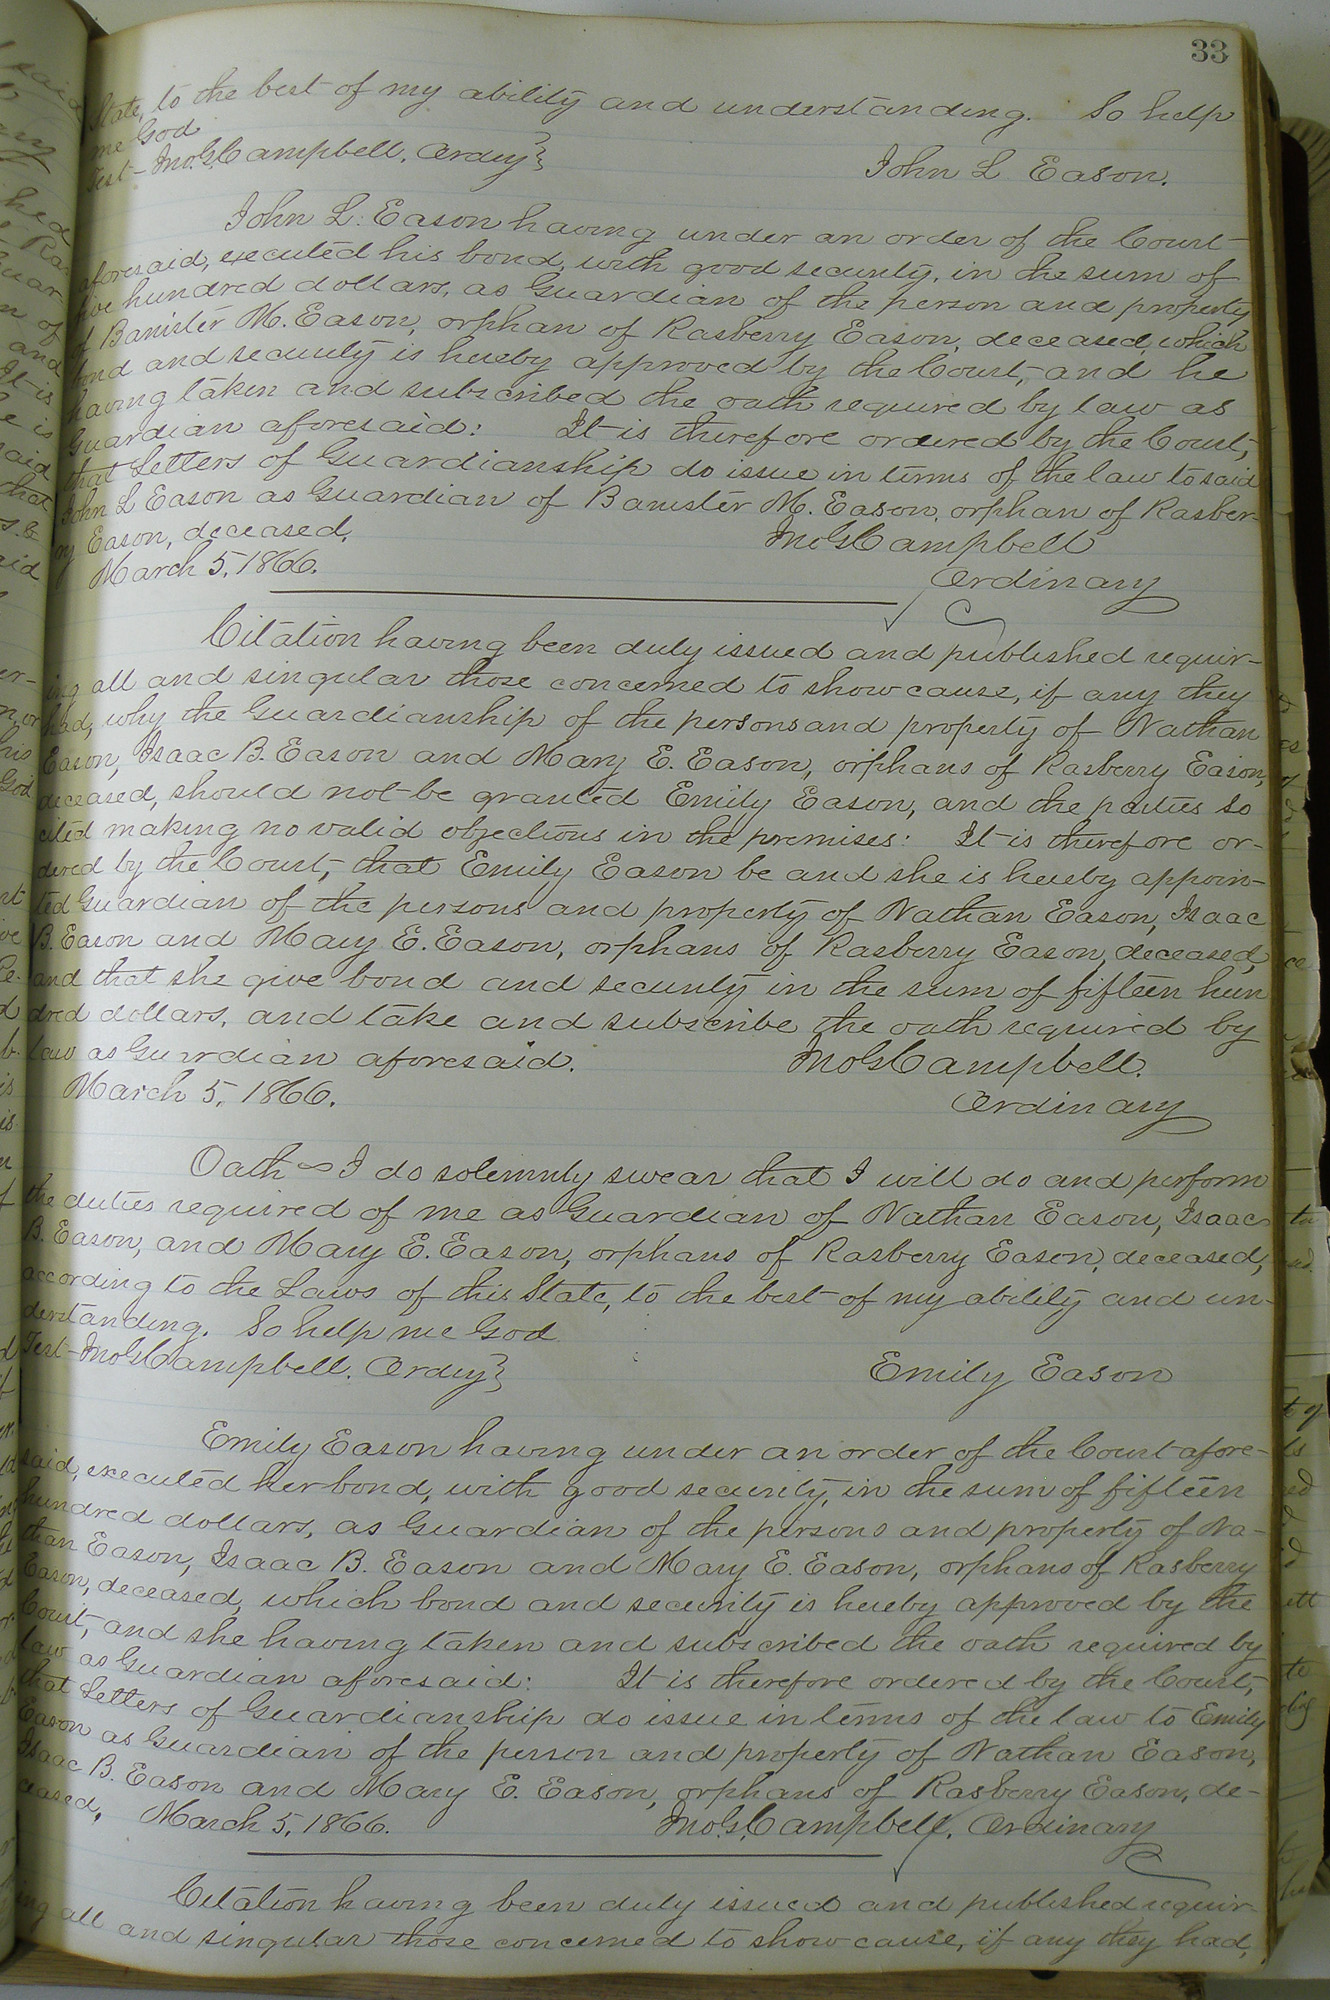 33
State, to the best of my ability and understanding. So help
me God
Test - Jno. G. Campbell, Ordry }
John L Eason.
John L. Eason having under an order of the Court
aforesaid, executed his bond, with good security, in the sum of
five hundred dollars, as Guardian of the person and property
of Banister M. Eason, orphan of Rasberry Eason, deceased, which
bond and security is hereby approved by the Court, and he
having taken and subscribed the oath required by law as
Guardian aforesaid: It is therefore ordered by the Court,
that Letters of Guardianship do issue in terms of the law to said
John L Eason as Guardian of Banister M. Eason, orphan of Rasber-
ry Eason, deceased.
Jno G Campbell
March 5, 1866.
Ordinary
Citation having been duly issued and published requir-
ing all and singular those concerned to show cause, if any they
had, why the Guardianship of the persons and property of Nathan
Eason, Isaac B. Eason and Mary E. Eason, orphans of Rasberry Eason,
deceased, should not be granted Emily Eason, and the parties so
cited making no valid objections in the premises: It is therefore or-
dered by the Court, that Emily Eason be and she is hereby appoin-
ted Guardian of the persons and property of Nathan Eason, Isaac
B. Eason and Mary E. Eason, orphans of Rasberry Eason, deceased,
and that she give bond and security in the sum of fifteen hun
dred dollars, and take and subscribe the oath required by
law as Guardian aforesaid.
Jno G Campbell.
March 5, 1866.
Ordinary
Oath ~ I do solemnly swear that I will do and perform
the duties required of me as Guardian of Nathan Eason, Isaac
B. Eason, and Mary E. Eason, orphans of Rasberry Eason, deceased,
according to the Laws of this State, to the best of my ability and un-
derstanding. So help me God
Test - Jno G Campbell. Ordry }
Emily Eason
Emily Eason having under an order of the Court afore-
said, executed her bond, with good security, in the sum of fifteen
hundred dollars, as Guardian of the persons and property of Na-
than Eason, Isaac B. Eason and Mary E. Eason, orphans of Rasberry
Eason, deceased, which bond and security is hereby approved by the
Court, and she having taken and subscribed the oath required by
law as Guardian aforesaid: It is therefore ordered by the Court,
that Letters of Guardianship do issue in terms of the law to Emily
Eason as Guardian of the person and property of Nathan Eason,
Isaac B. Eason and Mary E. Eason, orphans of Rasberry Eason, de-
ceased. March 5, 1866.
Jno. G. Campbell, Ordinary
Citation having been duly issued and published requir-
ing all and singular those concerned to show cause, if any they had,